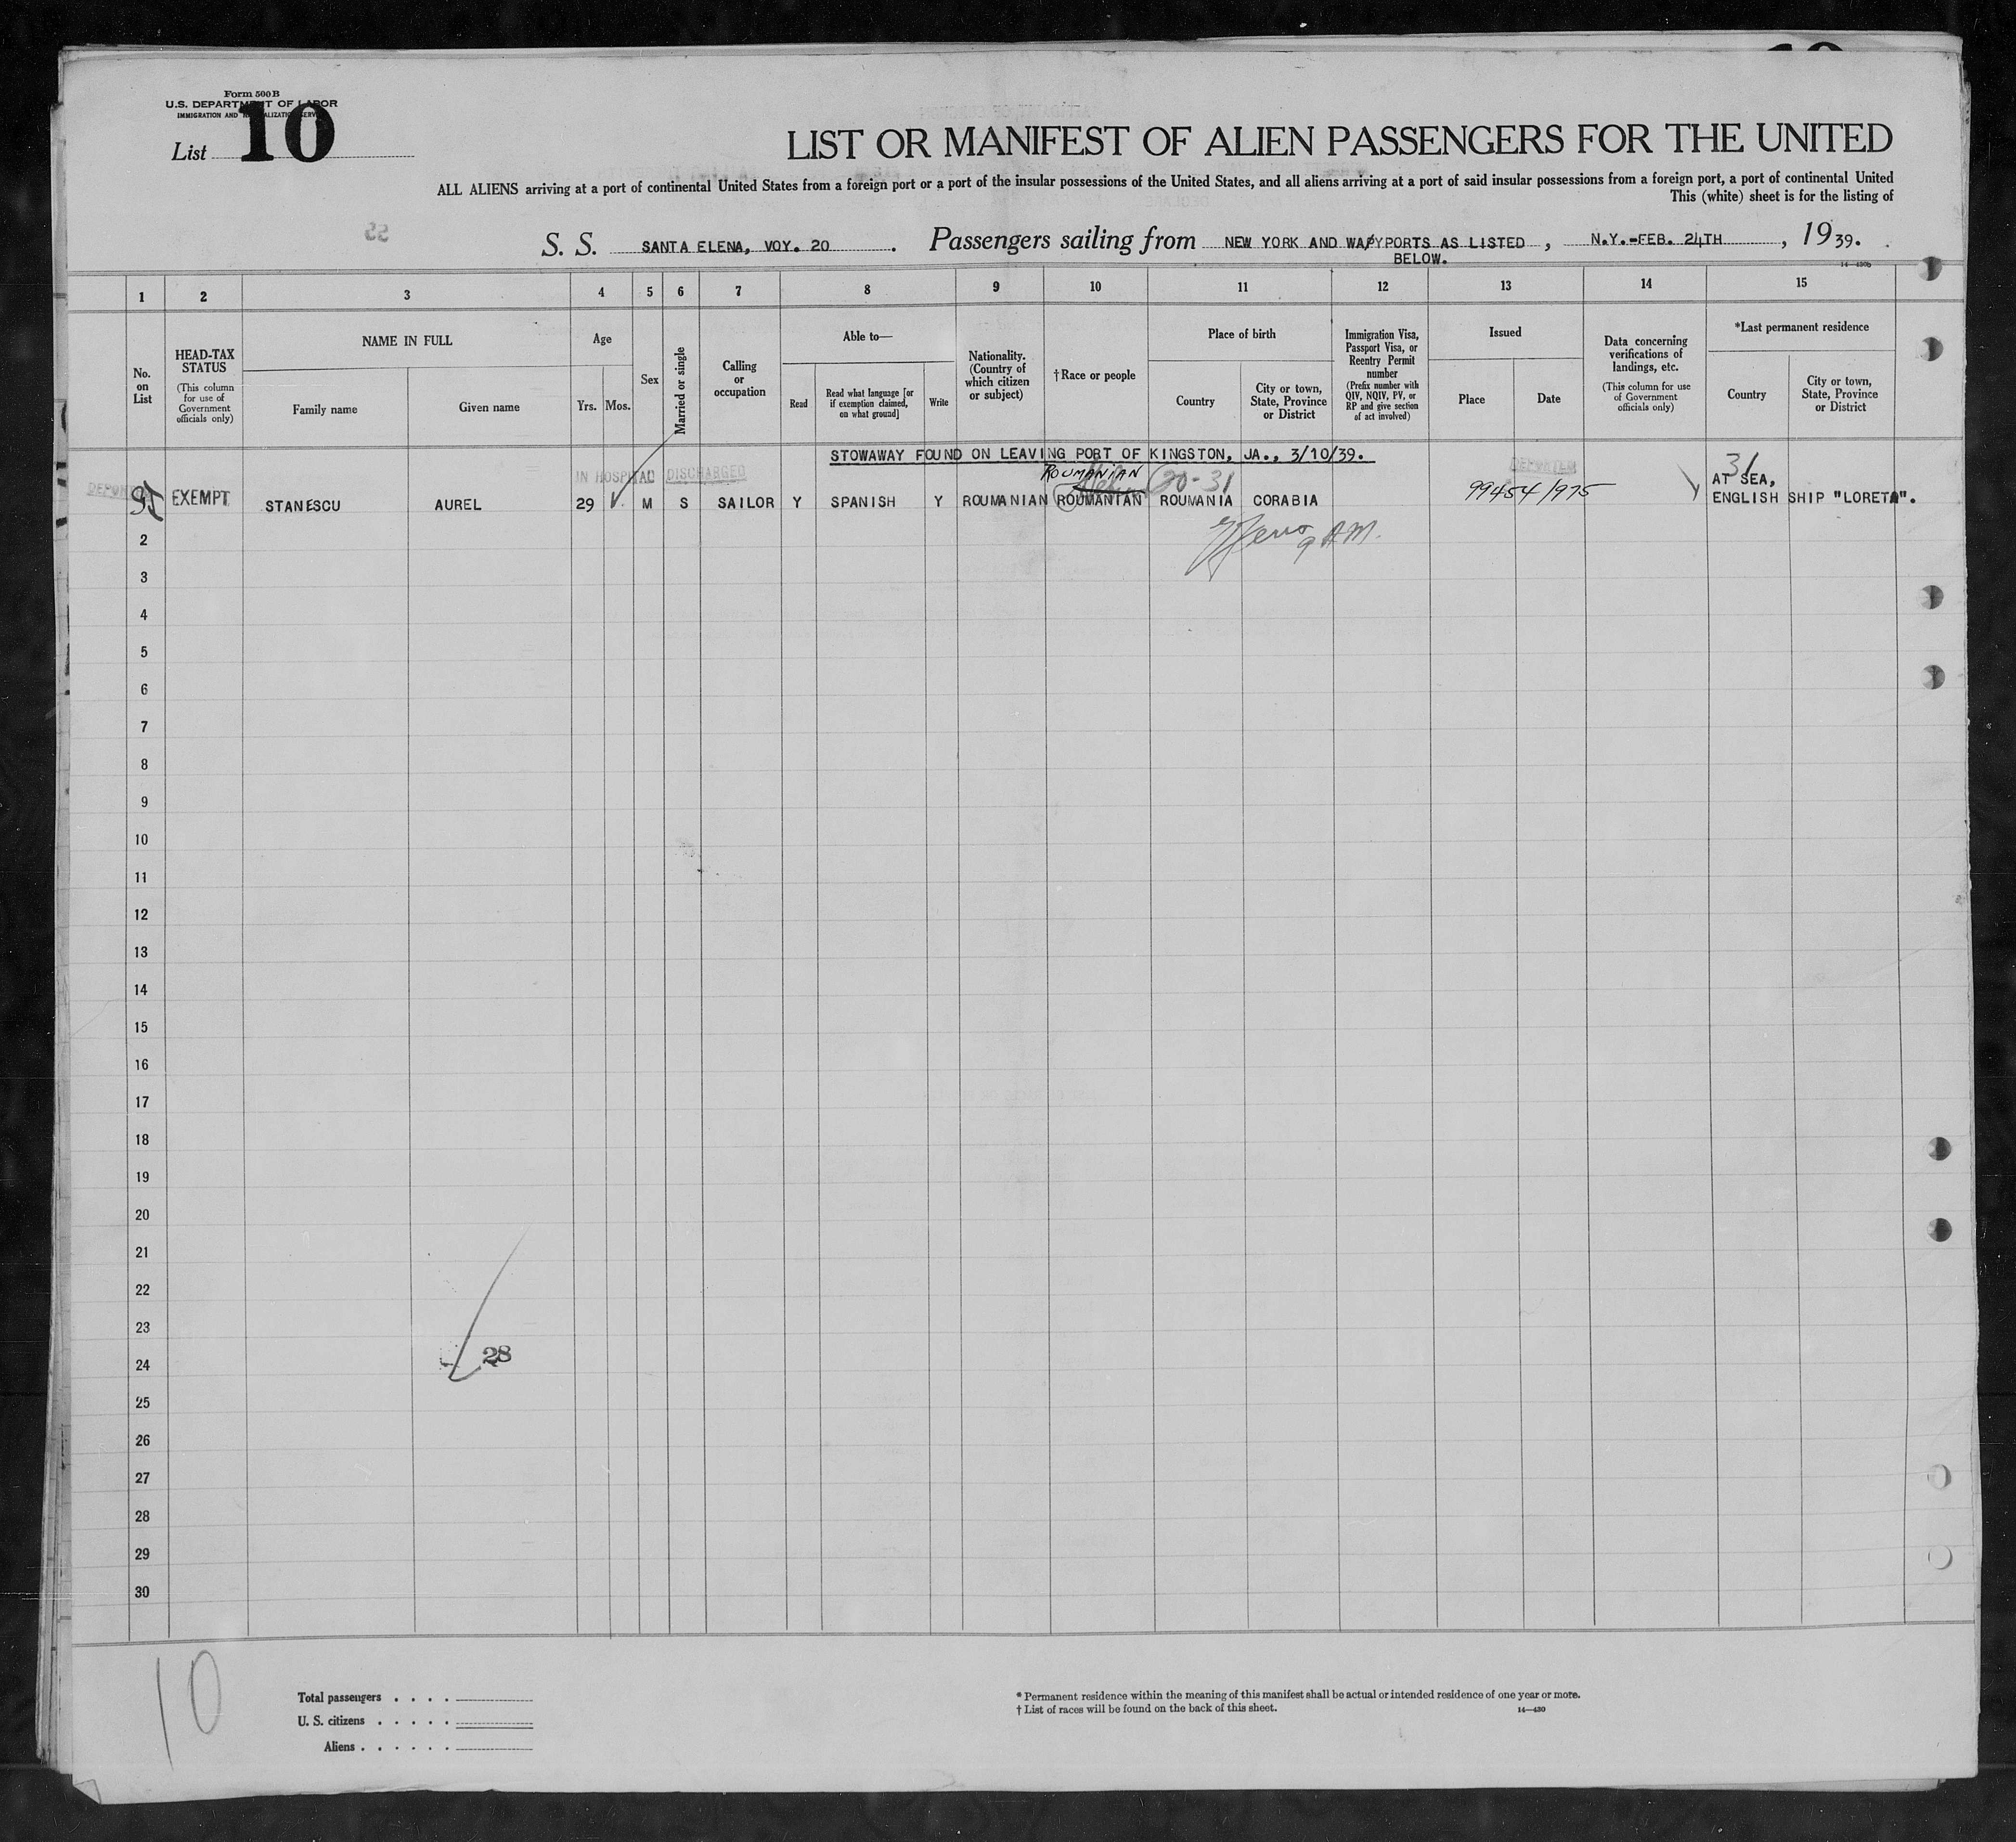 Form 500 B
U.S. DEPARTMENT OF LABOR
IMMIGRATION AND NATURALIZATION SERVICE
List 10
LIST OR MANIFEST OF ALIEN PASSENGERS FOR THE UNITED
ALL ALIENS arriving at a port of continental United States from a foreign port or a port of the insular possessions of the United States, and all aliens arriving at a port of said insular possessions from a foreign port, a port of continental United
This (white) sheet is for the listing of
S. S. SANTA ELENA, VOY. 20 . Passengers sailing from NEW YORK AND WAYPORTS AS LISTED , N.Y.-FEB. 24TH , 1939.
BELOW.
1 2 3 4 5 6 7 8 9 10 11 12 13 14 15
No. on List
HEAD-TAX STATUS
(This column for use of Government officials only)
NAME IN FULL
Family name
Given name
Age
Yrs. Mos.
Sex
Married or single
Calling or occupation
Able to—
Read
Read what language [or if exemption claimed, on what ground]
Write
Nationality. (Country of which citizen or subject)
†Race or people
Place of birth
Country
City or town, State, Province or District
Immigration Visa, Passport Visa, or Reentry Permit number
(Prefix number with QIV, NQIV, PV, or RP and give section of act involved)
Issued
Place
Date
Data concerning verifications of landings, etc.
(This column for use of Government officials only)
*Last permanent residence
Country
City or town, State, Province or District
STOWAWAY FOUND ON LEAVING PORT OF KINGSTON, JA., 3/10/39.
IN HOSPITAL DISCHARGED
ROUMANIAN
20-31
DEPORTED
31
AT SEA,
EXEMPT STANESCU AUREL 29 M S SAILOR Y SPANISH Y ROUMANIAN ROUMANIAN ROUMANIA CORABIA 99454/975 ENGLISH SHIP "LORETA".
9 AM.
2
3
4
5
6
7
8
9
10
11
12
13
14
15
16
17
18
19
20
21
22
23
24
28
25
26
27
28
29
30
10
Total passengers . . . .
U. S. citizens . . . . .
Aliens . . . . . .
* Permanent residence within the meaning of this manifest shall be actual or intended residence of one year or more.
† List of races will be found on the back of this sheet.
14—430